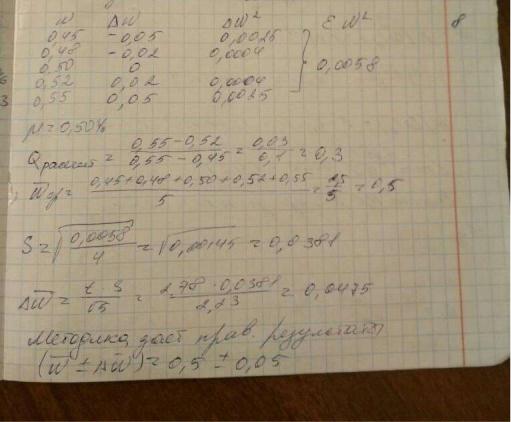 W ΔW ΔW² ΣW² 8
0,45 -0,05 0,0025
0,48 -0,02 0,0004
0,50 0 0,0058
0,52 0,02 0,0004
0,55 0,05 0,0025
μ = 0,50%
Qрасчет = (0,55 - 0,52)/(0,55 - 0,45) = 0,03/0,1 = 0,3
W̄ср = (0,45+0,48+0,50+0,52+0,55)/5 = 2,5/5 = 0,5
S = √(0,0058/4) = √0,00145 = 0,0381
ΔW̄ = t·S/√5 = 2,78·0,0381/2,23 = 0,0475
Методика даст прав. результаты
(W̄ ± ΔW̄) = 0,5 ± 0,05